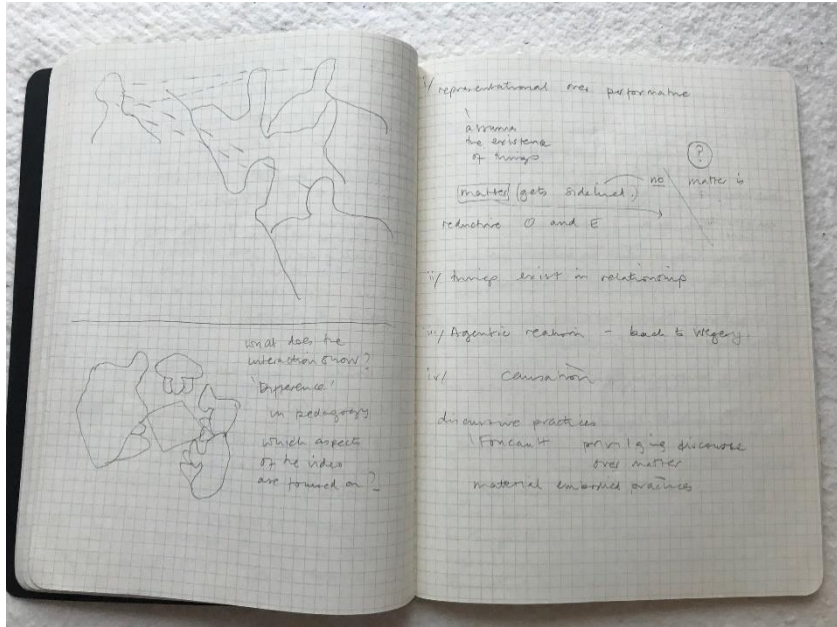 what does the
interaction show?
'Difference'
in pedagogy
which aspects
of the video
are focused on?
i/ representational over performative
assumes
the existence
of things
?
matter (gets sidelined.) no matter is
reductive O and E
ii/ things exist in relationship
iii/ Agentic realism - back to Wegerif.
iv/ Causation
discursive practices
Foucault privilging discourse
over matter
material embodied practices